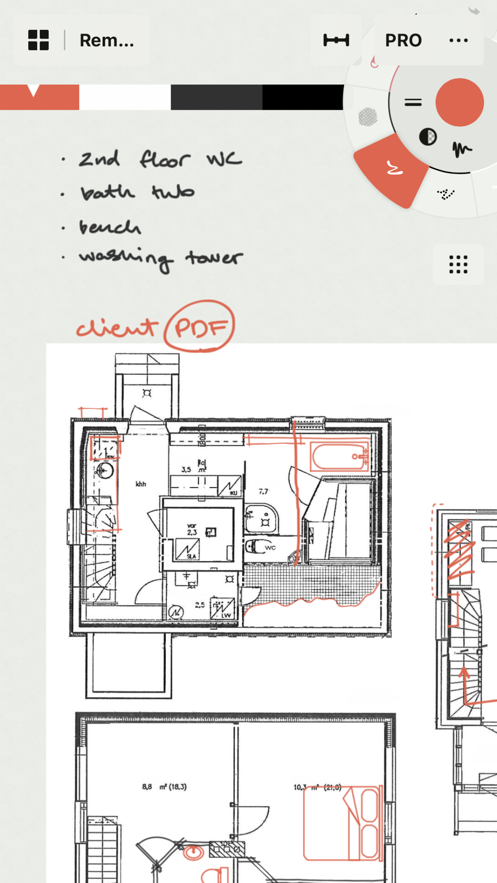 Rem...
PRO
2nd floor WC
bath tub
bench
washing tower
client PDF
khh
3,5 m²
KU
7,7
WC
var
2,3
SLA
2,5
8,8 m² (18,3)
10,3 m² (21,0)